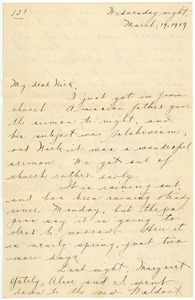 131
Wednesday night
March, 19, 1919.
My dear Nick,
I just got in from
church. A mission father gave
the sermon to-night, and
his subject was Bolshevism,
and Nick it was a wonderful
sermon. We got out of
church rather early.
It is raining out,
and has been raining steady
since Monday, but the
say it is going to
clear to-morrow. Gee it
is nearly spring, just two
more days.
Last night, Margaret
Gately, Alice and I went
down to the new Waldorf